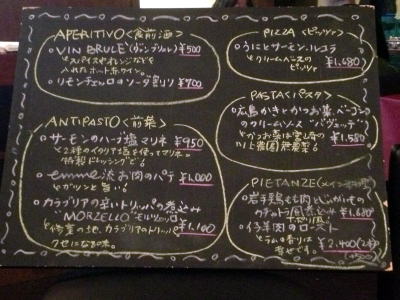 APERITIVO <食前酒>
VIN BRULÉ (ヴァンブリュレ) ¥500
スパイスやオレンジなどを
入れたホット赤ワイン。
リモンチェッロのソーダ割り ¥700
ANTIPASTO <前菜>
サーモンのハーブ塩マリネ ¥950
2種のイタリア塩を使ってマリネ。
特製ドレッシングで
emme流お肉のパテ ¥1,000
ガツンと旨い
カラブリアの辛いトリッパの煮込み
"MORZELLO" モルツェッロ ¥1,100
修業の地、カラブリアのトリッパ
クセになる味。
PIZZA <ピッツァ>
うにとサーモン、ルコラ
クリームベースの
ピッツァ ¥1,680
PASTA <パスタ>
広島かきとかつお菜、ベーコン
のクリームソース "バヴェッテ"
¥1,580
かつお菜は
川上農園 無農薬
PIETANZE (メイン料理)
岩手鶏もも肉とじゃがいもの
カチャトラ ¥1,680
仔羊肉のロースト
¥2,400 (2本)
ラムの香りは
幸せです。